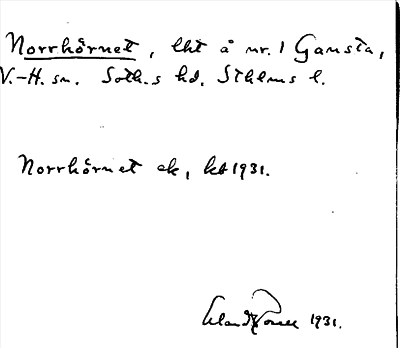 Norrhörnet, lht å nr. 1 Gansta,
V.-H. sn. Soth.s hd, Sthlms l.
Norrhörnet ek, kb 1931.
1931.